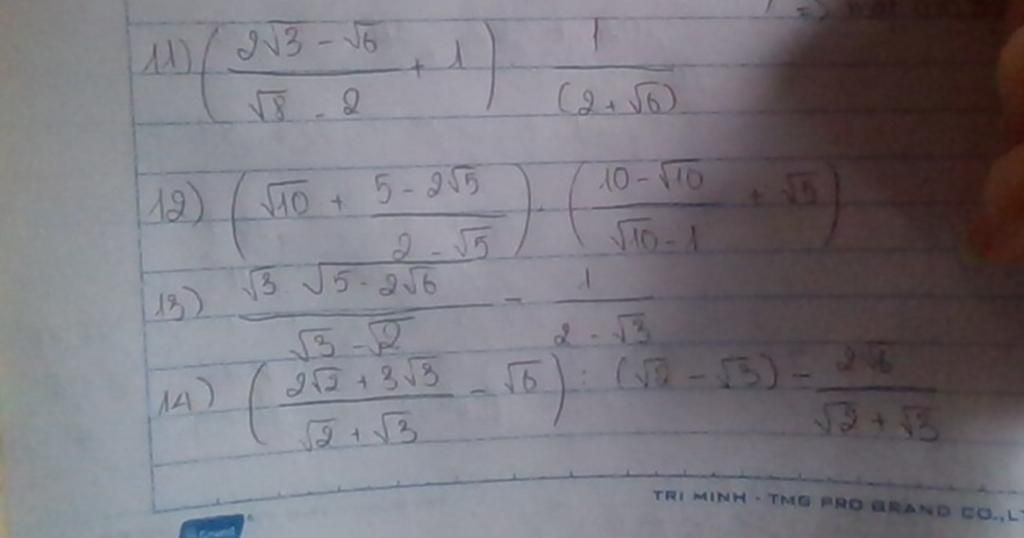 11) ( (2√3 - √6)/(√8 - 2) + 1 ) · 1/(2 + √6)
12) ( √10 + (5 - 2√5)/(2 - √5) ) · ( (10 - √10)/(√10 - 1) + √5 )
13) (√3 · √5 - 2√6)/(√3 - √2) - 1/(2 - √3)
14) ( (2√2 + 3√3)/(√2 + √3) - √6 ) : (√2 - √3) - 2√6/(√2 + √3)
TRI MINH - TMG PRO GRAND CO.,L